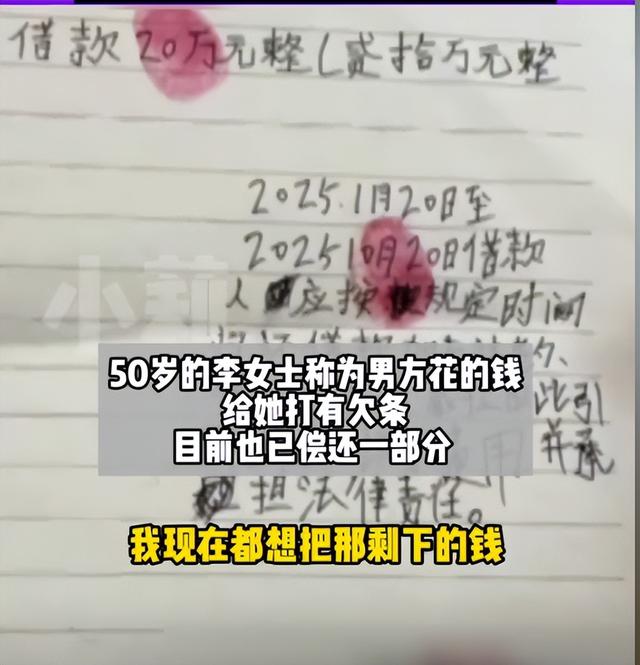 借款20万元整（贰拾万元整
2025.1月20日至
202510月20日借款
人应按规定时间
小莉
50岁的李女士称为男方花的钱
给她打有欠条
目前也已偿还一部分
此引
用并承
担法律责任。
我现在都想把那剩下的钱